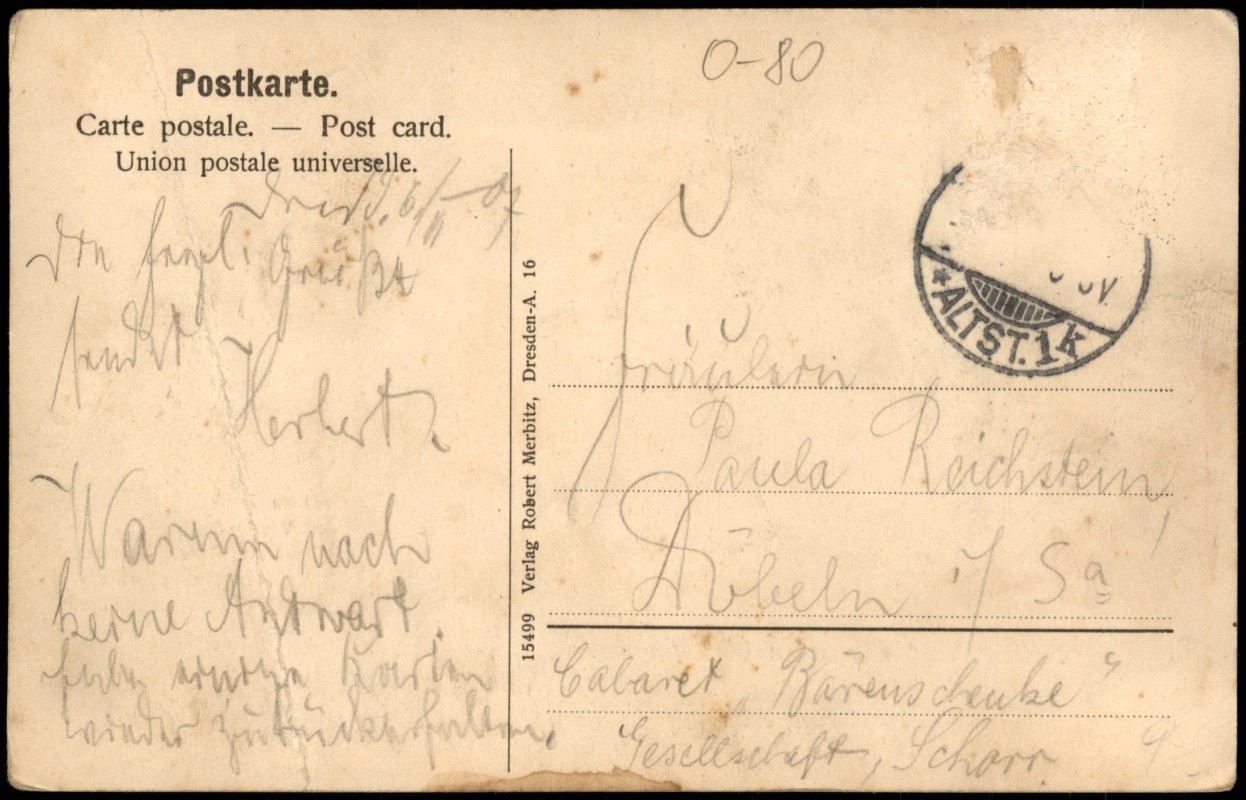 O-80
Postkarte.
Carte postale. — Post card.
Union postale universelle.
Dresd. 6/11-07
Die herzl. Grüße
sendet
Herbert.
Warum noch
keine Antwort.
Habe einige Karten
wieder zurückerhalten.
15499 Verlag Robert Merbitz, Dresden-A. 16
*ALTST. 1k
Fräulein
Paula Reichstein,
Döbeln i/Sa
Cabaret „Bärenschenke"
Gesellschaft, Schorr.